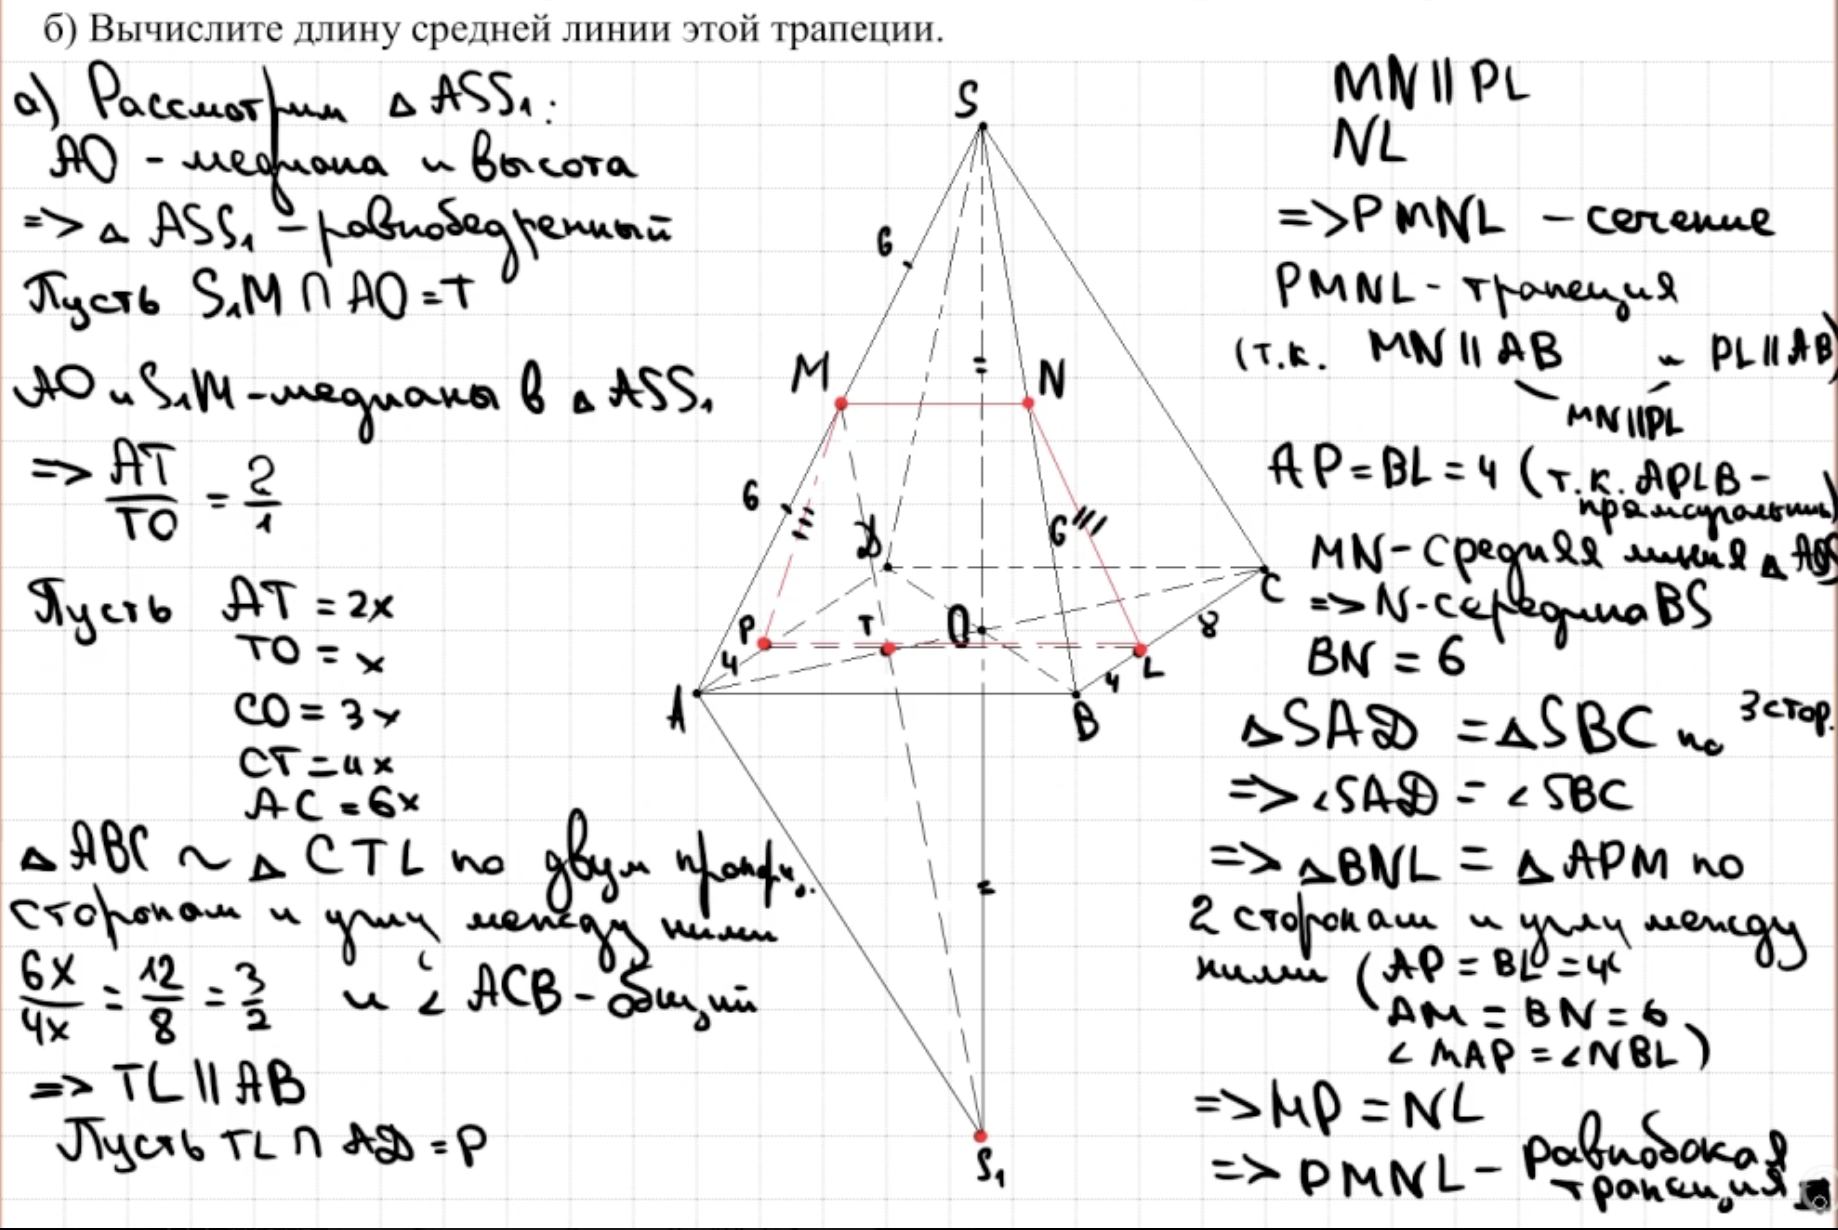 б) Вычислите длину средней линии этой трапеции.
а) Рассмотрим △ ASS₁:
AO - медиана и высота
=> △ ASS₁ - равнобедренный
Пусть S₁M ∩ AO = T
AO и S₁M - медианы в △ ASS₁
=> AT/TO = 2/1
Пусть AT = 2x
TO = x
CO = 3x
CT = 4x
AC = 6x
△ ABC ~ △ CTL по двум пропорц.
сторонам и углу между ними
6x/4x = 12/8 = 3/2 и ∠ ACB - общий
=> TL || AB
Пусть TL ∩ AD = P
S
6
=
M
N
6
D
6
P
T
O
C
8
4
L
4
A
B
=
S₁
MN || PL
NL
=> PMNL - сечение
PMNL - трапеция
(т.к. MN || AB и PL || AB)
MN || PL
AP = BL = 4 (т.к. APLB -
прямоугольник)
MN - средняя линия △
=> N - середина BS
BN = 6
△ SAD = △ SBC по 3 стор.
=> ∠SAD = ∠SBC
=> △BNL = △APM по
2 сторонам и углу между
ними (AP = BL = 4
AM = BN = 6
∠ MAP = ∠NBL)
=> MP = NL
=> PMNL - равнобокая
трапеция